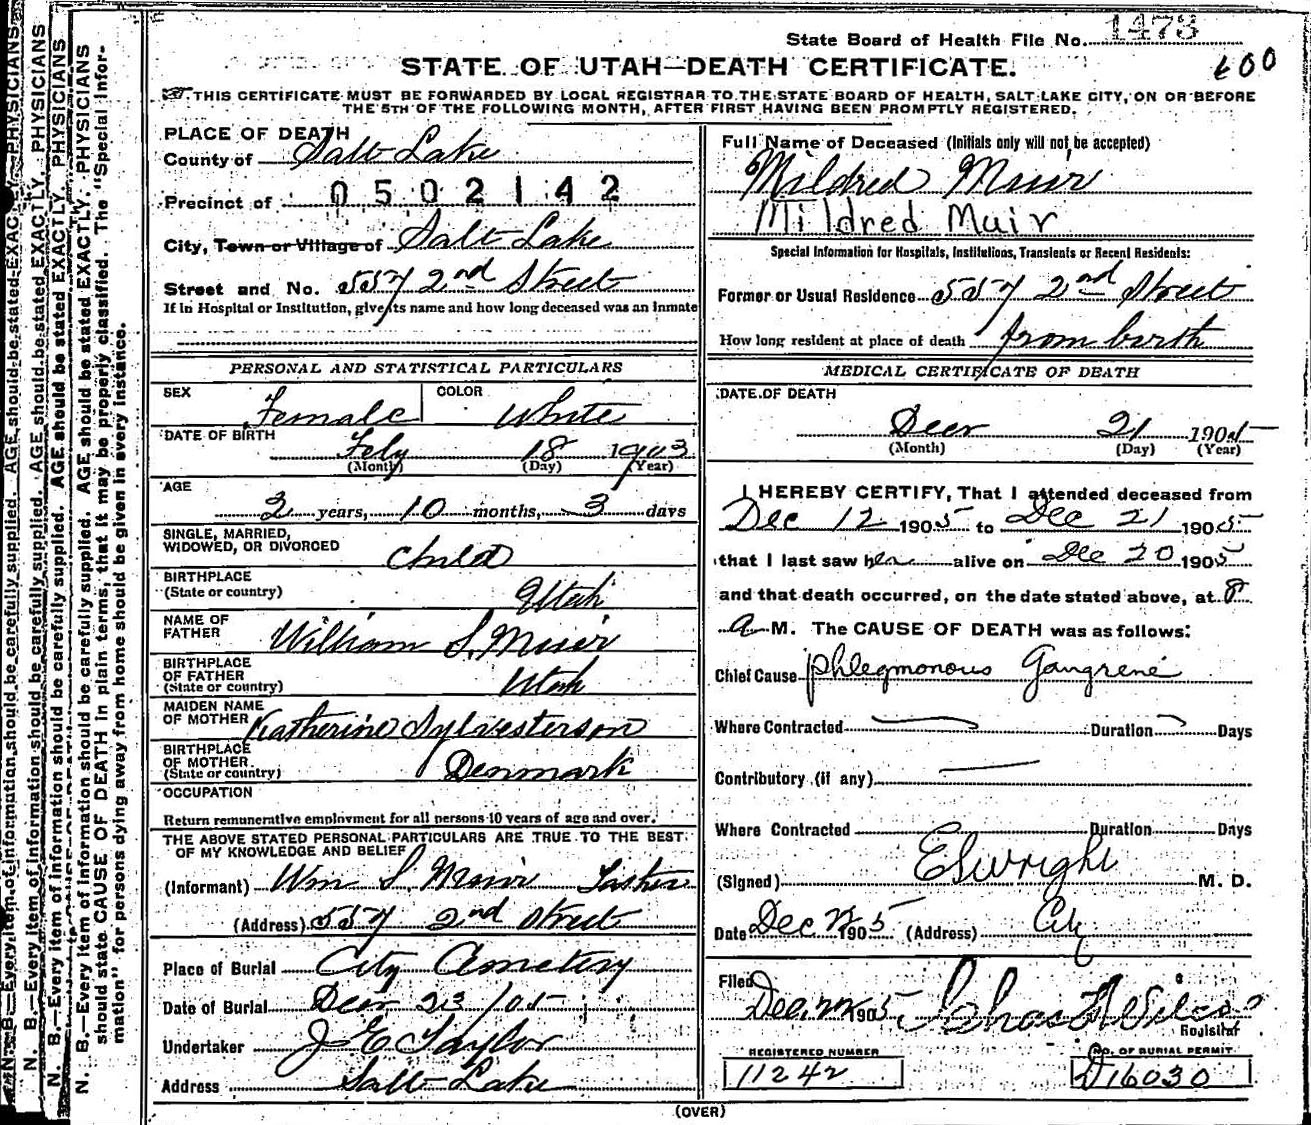 State Board of Health File No. 1473
STATE OF UTAH—DEATH CERTIFICATE. 600
THIS CERTIFICATE MUST BE FORWARDED BY LOCAL REGISTRAR TO THE STATE BOARD OF HEALTH, SALT LAKE CITY, ON OR BEFORE
THE 5TH OF THE FOLLOWING MONTH, AFTER FIRST HAVING BEEN PROMPTLY REGISTERED.
PLACE OF DEATH
County of Salt Lake
Precinct of 0502142
City, Town or Village of Salt Lake
Street and No. 557 2nd Street
If in Hospital or Institution, give its name and how long deceased was an Inmate
PERSONAL AND STATISTICAL PARTICULARS
SEX Female COLOR White
DATE OF BIRTH Feby 18 1903
(Month) (Day) (Year)
AGE
2 years, 10 months, 3 days
SINGLE, MARRIED,
WIDOWED, OR DIVORCED Child
BIRTHPLACE
(State or country) Utah
NAME OF
FATHER William S. Muir
BIRTHPLACE
OF FATHER
(State or country) Utah
MAIDEN NAME
OF MOTHER Katherine Sylvesterson
BIRTHPLACE
OF MOTHER
(State or country) Denmark
OCCUPATION
Return remunerative employment for all persons 10 years of age and over.
THE ABOVE STATED PERSONAL PARTICULARS ARE TRUE TO THE BEST
OF MY KNOWLEDGE AND BELIEF
(Informant) Wm S. Muir
(Address) 557 2nd Street
Place of Burial City Cemetery
Date of Burial Decr 23/05
Undertaker J E Taylor
Address Salt Lake
Full Name of Deceased (Initials only will not be accepted)
Mildred Muir
Mildred Muir
Special Information for Hospitals, Institutions, Transients or Recent Residents:
Former or Usual Residence 557 2nd Street
How long resident at place of death from birth
MEDICAL CERTIFICATE OF DEATH
DATE OF DEATH
Decr 21 1905
(Month) (Day) (Year)
I HEREBY CERTIFY, That I attended deceased from
Dec 12 1905 to Dec 21 1905
that I last saw her alive on Dec 20 1905
and that death occurred, on the date stated above, at 8
a M. The CAUSE OF DEATH was as follows:
Chief Cause Phlegmonous Gangrene
Where Contracted Duration Days
Contributory (if any)
Where Contracted Duration Days
(Signed) E S Wright M. D.
Date Dec 22 1905 (Address) City
Filed Dec. 22 1905
Registrar
REGISTERED NUMBER
11242
NO. OF BURIAL PERMIT
D16030
(OVER)
N. B.—Every item of information should be carefully supplied. AGE should be stated EXACTLY. PHYSICIANS
should state CAUSE OF DEATH in plain terms, that it may be properly classified. The "Special Infor-
mation" for persons dying away from home should be given in every instance.